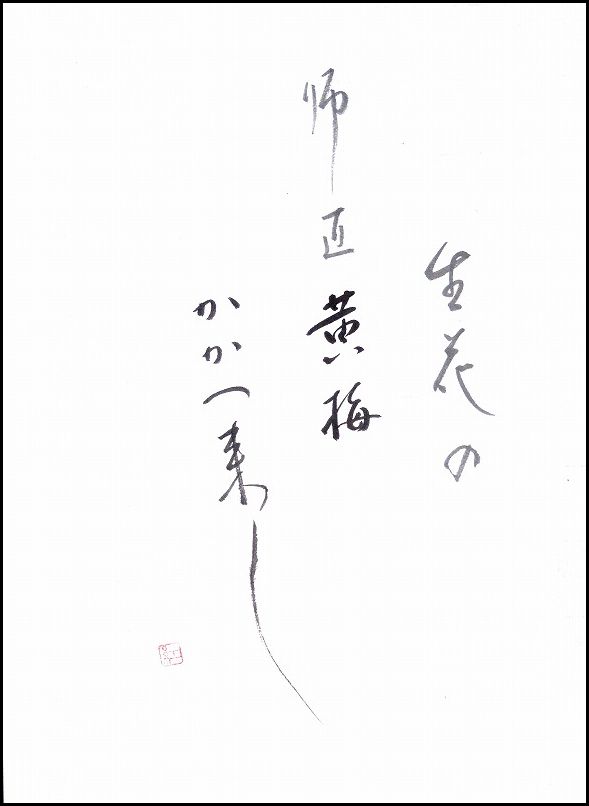 生花の
師匠黄梅
かかへ来し